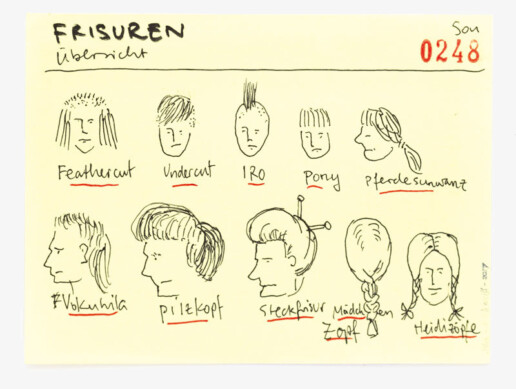 FRISUREN
Übersicht
Son
0248
Feathercut
Undercut
IRO
Pony
Pferdeschwanz
Vokuhila
Pilzkopf
Steckfrisur
Mädchen
Zopf
Heidizöpfe